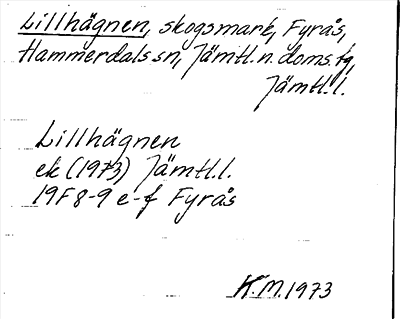 Lillhägnen, skogsmark, Fyrås,
Hammerdals sn, Jämtl. n. doms. tg,
Jämtl. l.
Lillhägnen
ek (1973) Jämtl. l.
19F 8-9 e-f Fyrås
K.M. 1973